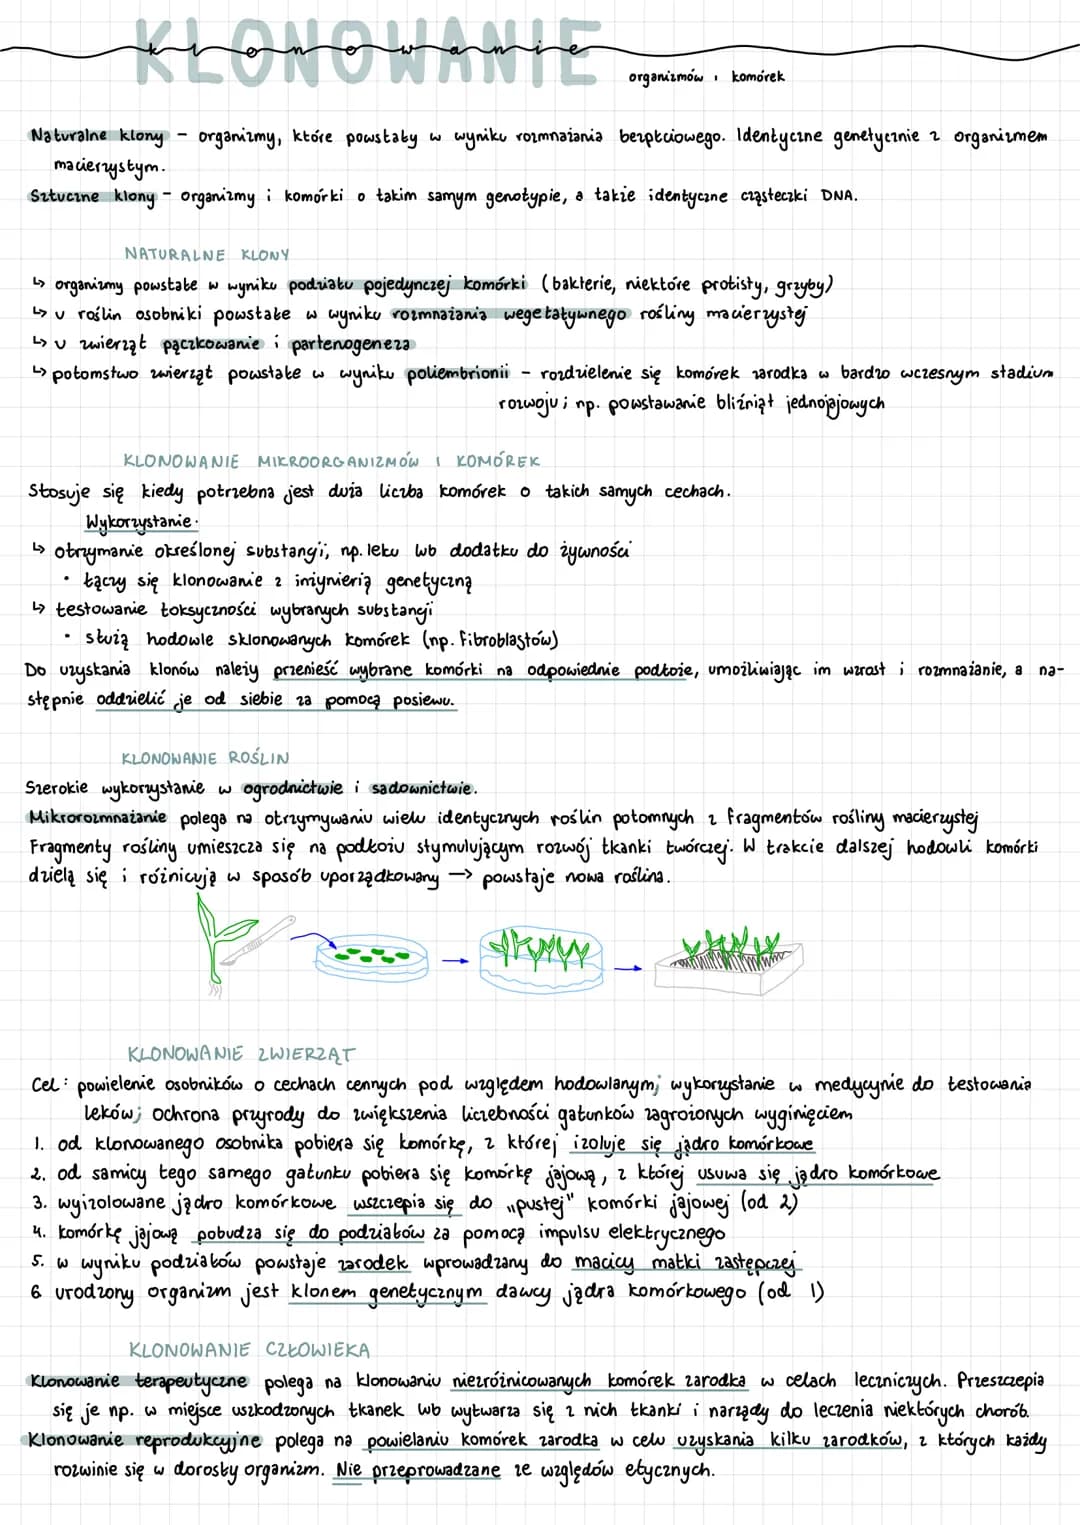 KLONOWANIE
klonowanie
organizmów i komórek
Naturalne klony - organizmy, które powstały w wyniku rozmnażania bezpłciowego. Identyczne genetycznie z organizmem
macierzystym.
Sztuczne klony - organizmy i komórki o takim samym genotypie, a także identyczne cząsteczki DNA.
NATURALNE KLONY
↳ organizmy powstałe w wyniku podziału pojedynczej komórki (bakterie, niektóre protisty, grzyby)
↳ u roślin osobniki powstałe w wyniku rozmnażania wegetatywnego rośliny macierzystej
↳ u zwierząt pączkowanie i partenogeneza
↳ potomstwo zwierząt powstałe w wyniku poliembrionii - rozdzielenie się komórek zarodka w bardzo wczesnym stadium
rozwoju; np. powstawanie bliźniąt jednojajowych
KLONOWANIE MIKROORGANIZMÓW I KOMÓREK
Stosuje się kiedy potrzebna jest duża liczba komórek o takich samych cechach.
Wykorzystanie:
↳ otrzymanie określonej substancji, np. leku lub dodatku do żywności
• łączy się klonowanie z inżynierią genetyczną
↳ testowanie toksyczności wybranych substancji
• służą hodowle sklonowanych komórek (np. fibroblastów)
Do uzyskania klonów należy przenieść wybrane komórki na odpowiednie podłoże, umożliwiając im wzrost i rozmnażanie, a na-
stępnie oddzielić je od siebie za pomocą posiewu.
KLONOWANIE ROŚLIN
Szerokie wykorzystanie w ogrodnictwie i sadownictwie.
Mikrorozmnażanie polega na otrzymywaniu wielu identycznych roślin potomnych z fragmentów rośliny macierzystej
Fragmenty rośliny umieszcza się na podłożu stymulującym rozwój tkanki twórczej. W trakcie dalszej hodowli komórki
dzielą się i różnicują w sposób uporządkowany → powstaje nowa roślina.
KLONOWANIE ZWIERZĄT
Cel: powielenie osobników o cechach cennych pod względem hodowlanym; wykorzystanie w medycynie do testowania
leków; ochrona przyrody do zwiększenia liczebności gatunków zagrożonych wyginięciem
1. od klonowanego osobnika pobiera się komórkę, z której izoluje się jądro komórkowe
2. od samicy tego samego gatunku pobiera się komórkę jajową, z której usuwa się jądro komórkowe
3. wyizolowane jądro komórkowe wszczepia się do „pustej" komórki jajowej (od 2)
4. komórkę jajową pobudza się do podziałów za pomocą impulsu elektrycznego
5. w wyniku podziałów powstaje zarodek wprowadzany do macicy matki zastępczej
6 urodzony organizm jest klonem genetycznym dawcy jądra komórkowego (od 1)
KLONOWANIE CZŁOWIEKA
Klonowanie terapeutyczne polega na klonowaniu niezróżnicowanych komórek zarodka w celach leczniczych. Przeszczepia
się je np. w miejsce uszkodzonych tkanek lub wytwarza się z nich tkanki i narządy do leczenia niektórych chorób.
Klonowanie reprodukcyjne polega na powielaniu komórek zarodka w celu uzyskania kilku zarodków, z których każdy
rozwinie się w dorosły organizm. Nie przeprowadzane ze względów etycznych.